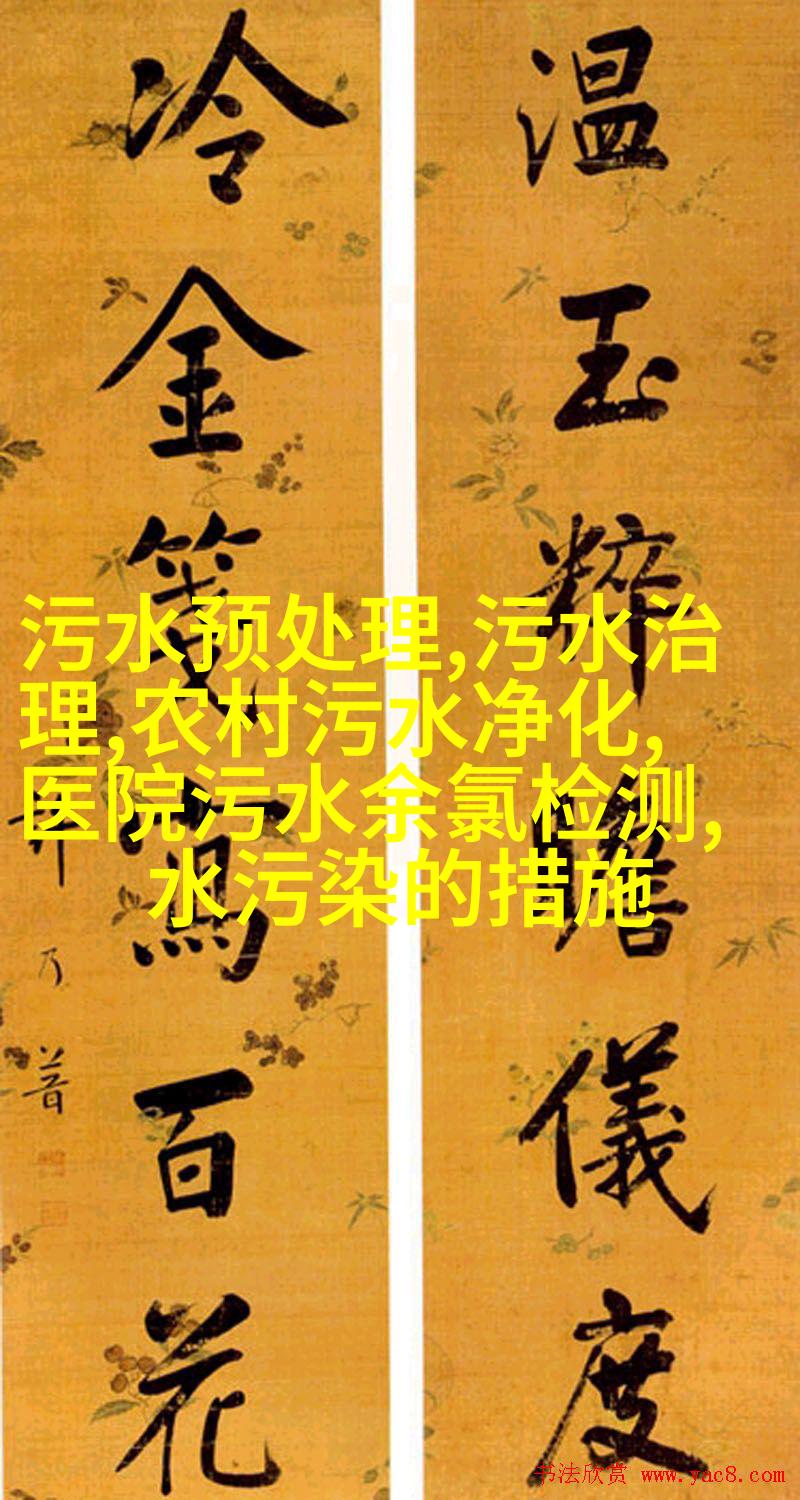 温玉粹瞻儀度
冷金箋寫百花
乃普
污水预处理,污水治
理,农村污水净化,
医院污水余氯检测,
水污染的措施
书法欣赏 www.yac8.com